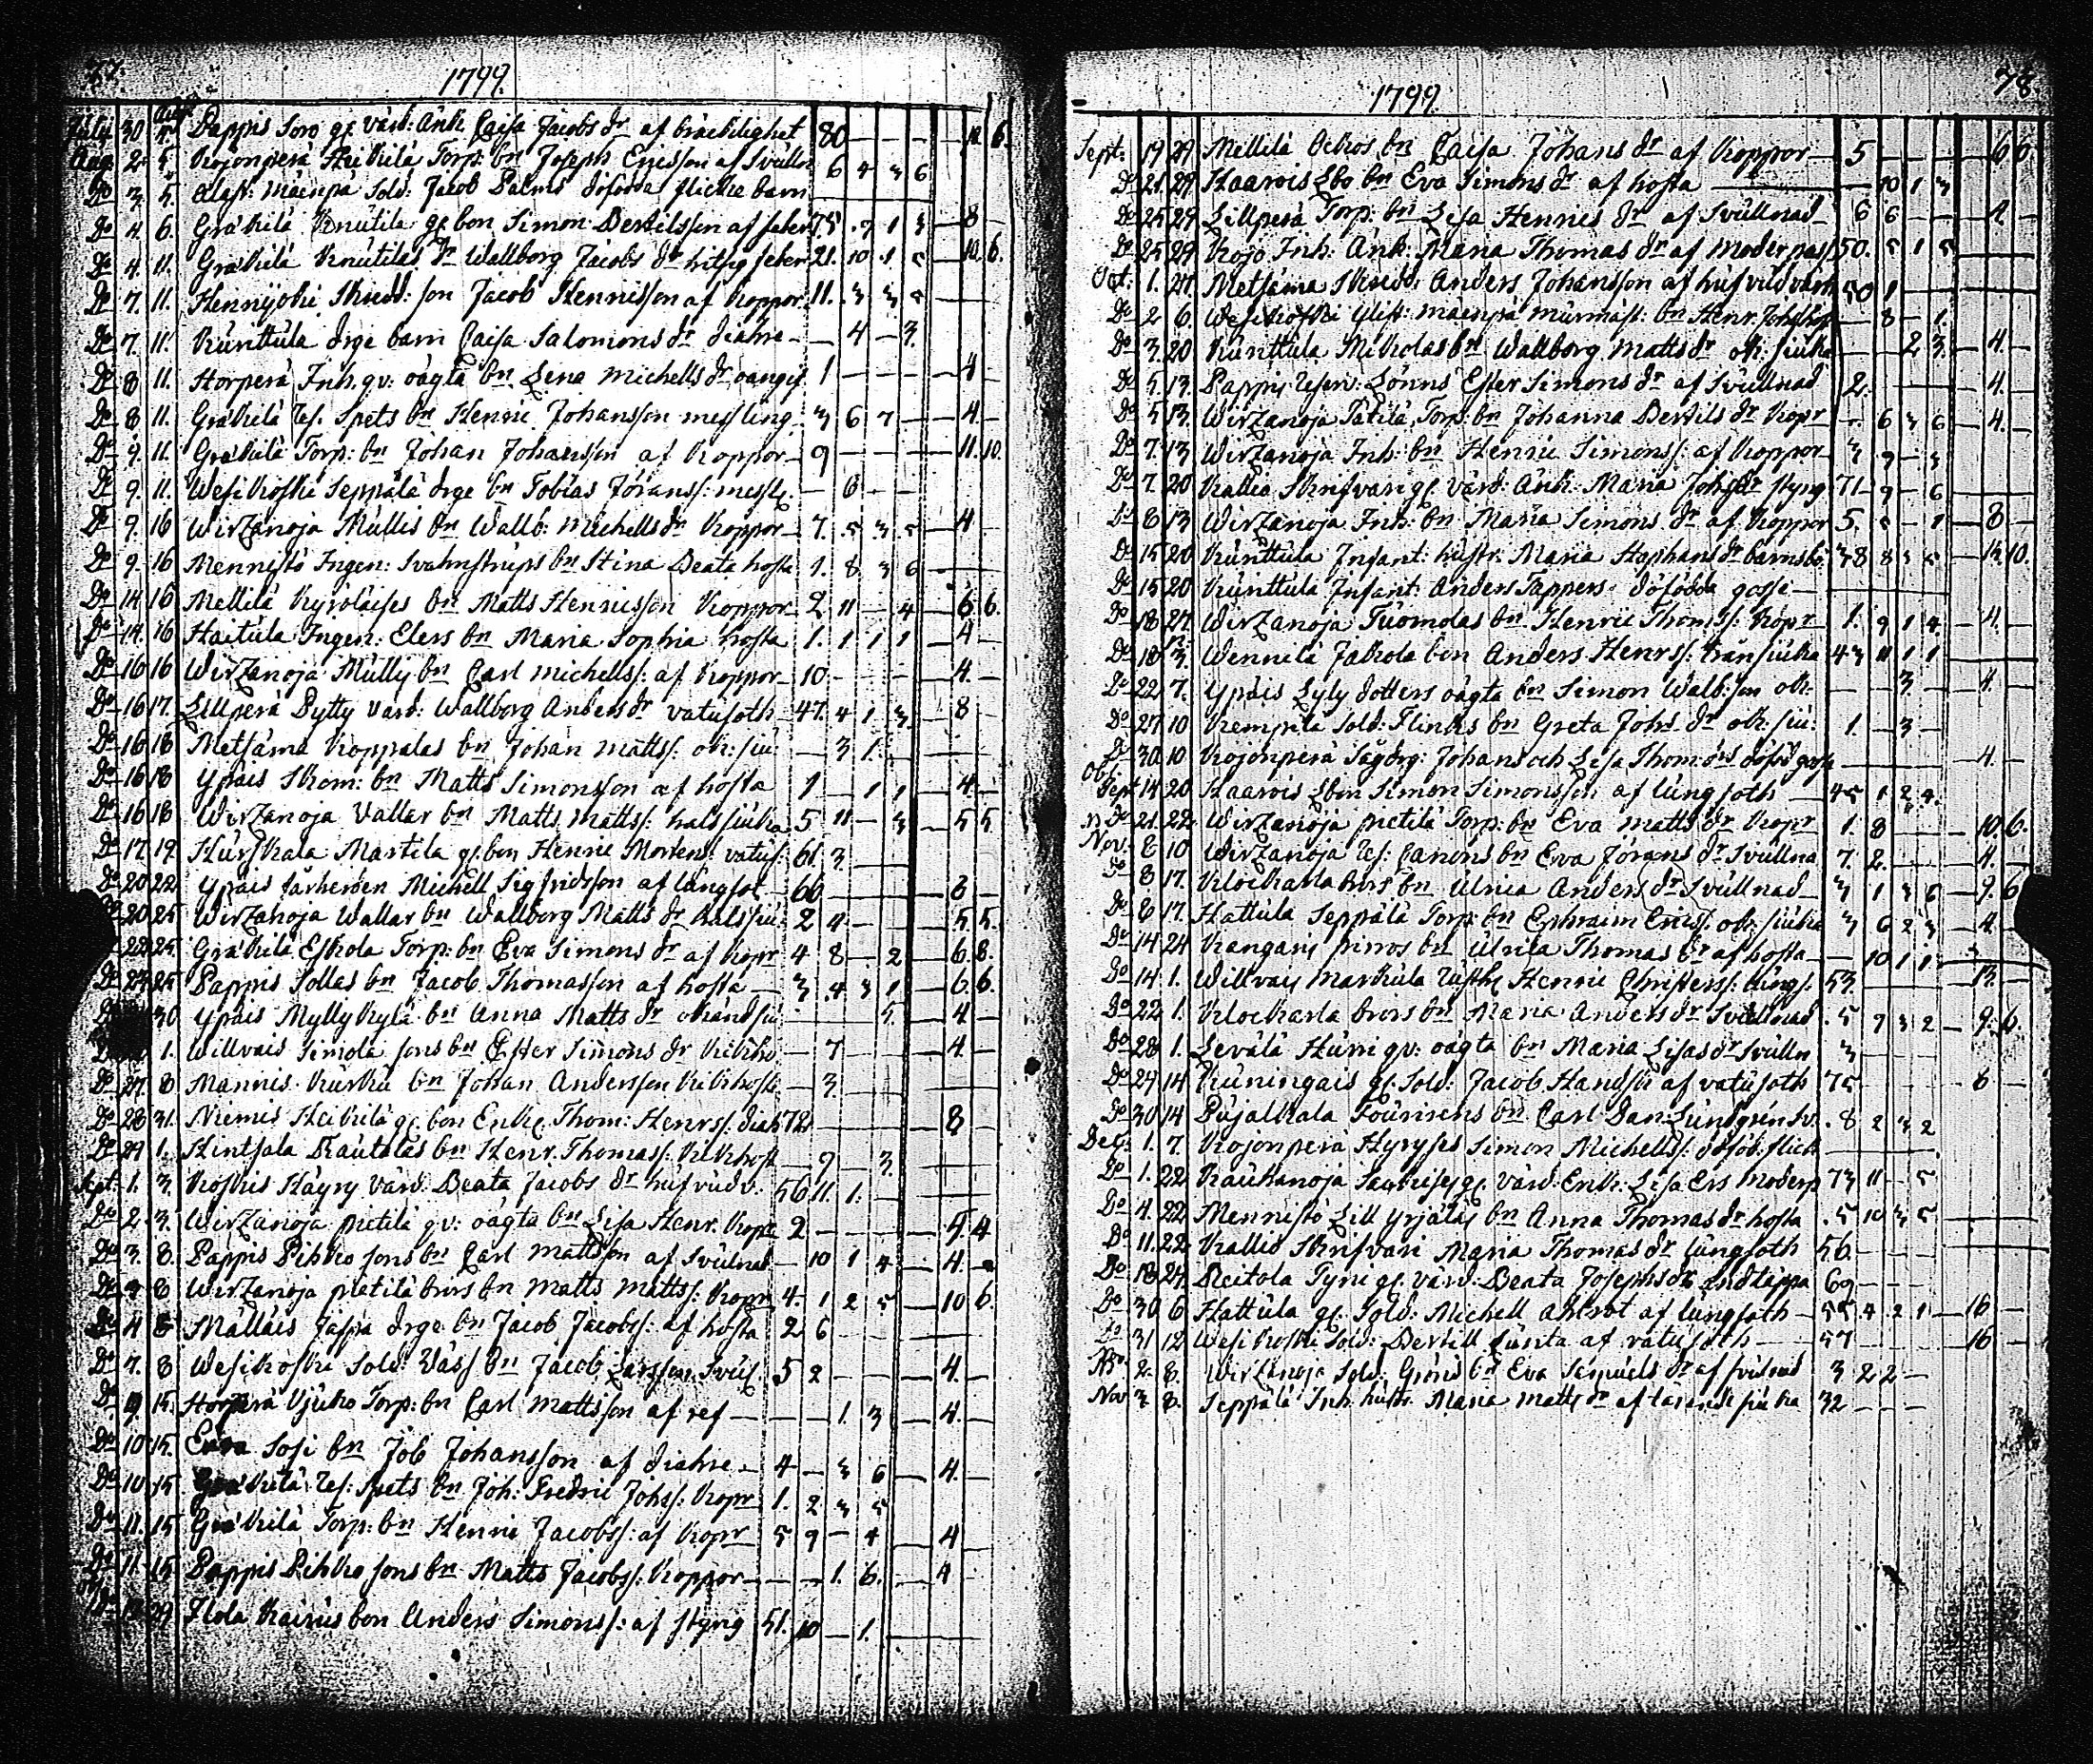 77.
1799.
July 30 Aug. 4. Pappis Soro gl. värd. Änk. Caisa Jacobs dr af bräcklighet 80 — — — — 12. 6.
Aug. 2. 5. Kojonperä Heikilä Torp: bn Joseph Ericsson af Svulln. 6 4 3 6
Do 3. 5. mäenpä Sold: Jacob Palms dödfödda flicke barn
Do 4. 6. Gräkilä Knutila gl bon Simon Bertilsson af feber 75. 7 1 3 — 8
Do 4. 11. Gräkilä Knutilas Dr Wallborg Jacobs dr hitsig feber 21. 10. 1. 5 — 10. 6.
Do 7. 11. Hennijoki Skredd: son Jacob Henrisson af Koppor. 11. 3 3 5 — —
Do 7. 11. Kunttula drge barn Caisa Salomons dr diahre — 4 — 3.
Do 8 11. Horperä Inh. qv: oägta bn Lena Michells dr 1 — — — — 4 —
Do 8 11. Gräkilä Ref. Spets bn Henric Johansson messling. 3 6 7 — — 4 —
Do 9. 11. Gräkilä Torp: bn Johan Johansson af Koppor 9 — — — — 11. 10.
Do 9. 11. Wesikoski Seppälä drge bn Tobias Jöranss: messl. — 6 — —
Do 9. 16 Wirzanoja Mullis bn Wallb: Michells dr Koppor 7. 5 3 5 — 4
Do 9. 16 Mennistö Ingen: Svahnströms bn Stina Beata hosta 1. 8 3 6 — —
Do 14 16 Mellilä Kyröläises bn Matts Henricsson Koppor 2 11 — 4 — 6 6.
Do 14. 16 Haitula Ingen: Elers bn Maria Sophia hosta 1. 1 1 1 — 4 —
Do 16 16 Wirzanoja Mülly bn Carl Michellss: af Koppor 10 — — — — 4. —
Do 16 17. Lillperä Pytty värd: Wallborg Anders dr vatusoth 47. 4 1 3. — 8 —
Do 16 18 Metsäma Koppalas bn Johan Mattss: ok: siu: — 3 1. — — —
Do 16 18 Ypäis Skom: bn Matts Simonsson af hosta 1 — 1 1 — 4 —
Do 16 18 Wirzanoja Vallar bn Matts Mattss: halssiuka 5 11 — 3 — 5 5.
Do 17. 19. Hurskala Martila gl. bon Henric Mortens: vatus: 61 3. — —
Do 20 22 Ypäis färherden Michell Sigfridsson af lungsot 66 — — — 8 —
Do 20 25 Wirzanoja Wallar bn Wallborg Matts dr halssiu: 2 4 — — — 5 5.
22 25. Gräkilä Eskola Torp: bn Eva Simons dr af Kopr 4 8 — 2 — 6. 8.
Do 23 25 Pappis Sollas bn Jacob Thomasson af hosta 3. 4 3 1 — 6. 6.
30 Ypäis Myllykylä bn Anna Matts dr okänd siu: — — 5. — 4 —
1. Willvais Simola sons bn Ester Simons dr Kikhos — 7 — — 4. —
Do 27. 8 Mannis Kurku bn Johan Andersson Kikhosta — 3. — —
Do 28 31. Niemis Heikilä gl. bon Enkl. Thom: Henrss. diah 78 — — — 8 —
Do 29 1. Hintsala Rautalas bn Henr. Thomass: Kikhost — 9 — 3. —
Sept. 1. 3. Koskis Häyry värd: Beata Jacobs dr hufvudv. 56 11. 1. — —
Do 2. 3. Wirzanoja pietilä qv: oägta bn Lisa Henr. Kopr 2 — — — — 5. 4
Do 3. 8. Pappis Pihko sons bn Carl Mattsson af Svulnad — 10 1 4 — 4. —
Do 4 8 Wirzanoja pietilä brors bn Matts Mattss: Kopr. 4. 1 2 5 — 10 6.
Do 4 8 Mälläis Jaspä drge bn Jacob Jacobss: af hosta 2 6 — —
Do 7. 8 Wesikoski Sold: Väss bn Jacob Larsson Svul. 5 2 — — — 4. —
Do 9. 15. Horperä Ujuko Torp: bn Carl Mattsson af ref — — 1. 3 — 4. —
Do 10 15. Euva Sosi bn Job Johansson af diahre 4 — 3 6 — 4. —
Do 10 15 Gräkilä Ref: Spets bn Joh: Fredric Johss: Kopr. 1. 2 3 5
Do 11. 15 Gräkilä Torp: bn Henric Jacobss: af Kopr 5 9 — 4 — 4
Do 11. 15 Pappis Pihko sons bn Matts Jacobss: Koppor — — 1. 6. — 4
29 Ilola Kairus bon Anders Simonss: af styng 51. 10 — 1. —
78
1799.
Sept: 19 29 Mellilä Ockos bn Caisa Johans dr af Koppor 5 — — — — 6 6.
Do 21. 29 Haarois Lbo bn Eva Simons dr af hosta — 10 1 3
Do 25 29 Lillperä Torp: bn Lisa Henrics dr af Svullnad 6 6 — — — 4 —
Do 25 29 Kojo Inh: Änk: Maria Thomas dr af moderpass 50. 5 1 5
Oct: 1. 27. Metsäma Skredd: Anders Johansson af hufvudvärk 50 1 — —
Do 2 6. Wesikoski mäenpä murmäst: bn Henr. Johss — 8 — 1.
Do 3. 20 Kunttula Mikolas bn Wallborg Matts dr ok: siuka — — 2 3. — 4. —
Do 5 13. Pappis Lönns Ester Simons dr af Svullnad 2. — — — 4. —
Do 5 13. Wirzanoja Tätilä Torp: bn Johanna Bertils dr Kopr — 6 3 6 — 4. —
Do 7. 13. Wirzanoja Inh: bn Henric Simonss: af Koppor 3 9 — 3
Do 7. 20 Kallio Skrifvari gl. värd: Änk: Maria Johs dr styng 71 9 — 6
Do 8 13 Wirzanoja Inh: bn Maria Simons dr af Koppor 5. 5 — 1 — 8 —
Do 15 20 Kunttula Infant: hustr: Maria Stephans dr barnsbö 38 8 3 5 — 15. 10.
Do 15 20 Kunttula Infant: Anders Tappers dödfödda gosse —
Do 18 27 Wirzanoja Tuomolas bn Henric Thoms: Kopr 1. 9 1 4. — 4. —
Do 18 n. 3. Wennilä Jakola bon Anders Henrss: tränsiuka 43 11 1 1
Do 22 7. Ypäis Lyly dotters oägta bn Simon Walb: son ok: — — 3 — 4. —
Do 27 10 Kempilä Sold: Flinks bn Greta Johs dr ok: siu: 1. — 3 —
Do 30 10 Kojonperä Sågdrg: Johans och Lisa Thom: drs dödfödd gosse — 4. —
Obs: Sept 14 20 Haarois Lbon Simon Simonsson af lungsoth 45 1 2 4.
Do 21 22 Wirzanoja pietilä Torp: bn Eva Matts dr Kopr 1. 8 — — — 10. 6.
Nov. 6 10 Wirzanoja Ref: Canons bn Eva Jörans dr Svullna 7. 2. — — — 4. —
Do 8 17. Klockarla brors bn Ulrica Anders dr Svullnad 3 1 3 6 — 9. 6
Do 8 17. Hattula Seppälä Torp: bn Ephraim Erics: ok: siuka 3 6 2 3 — 4 —
Do 14 24 Kangaris pirros bn Ulrica Thomas dr af hosta — 10 1 1 —
Do 14 1. Willvais Markula Henric Christerss: lungs: 53. — — — 13. —
Do 22 1. Klockarla brors bn Maria Anders dr Svullnad 5 9 3 2 — 9. 6.
Do 28 1. Levälä Hurri qv: oägta bn Maria Lisas dr Svulln 3 — — —
Do 29 14 Kuningais gl. Sold: Jacob Handsu af vatusoth 75 — — — 8 —
Do 30 14 Pujalkala Fourirens bn Carl Dan: Lundgren Sv. 8 2 3 2
Dec: 1. 7 Kojonperä Hyryses Simon Michellss: dödföd: flick —
Do 1. 22 Raukanoja gl. värd: Enk: Lisa Ers moderp 73 11 — 5
Do 4. 22 Mennistö Lill Yrjälas bn Anna Thomas dr hosta 5 10 3 5 —
Do 11. 22 Kallio Skrifvari Maria Thomas dr lungsoth 56. — — —
Do 18 24 Reitola Tyri gl. värd: Beata Josephs dr andtäppa 69 — — —
Do 30 6 Hattula gl. Sold: Michell Ahlrot af lungsoth 55 4 2 1 — 16 —
Do 31 12 Wesikoski Sold: Bertill Junta af vatusoth 57 — — — 16 —
2. 8. Wirzanoja Sold: Gröns bn Eva Samuels dr af 3 2 2 —
Nov 3 8. Seppälä Inh. hustr. Maria Matts dr af tärande siuka 32 — — —